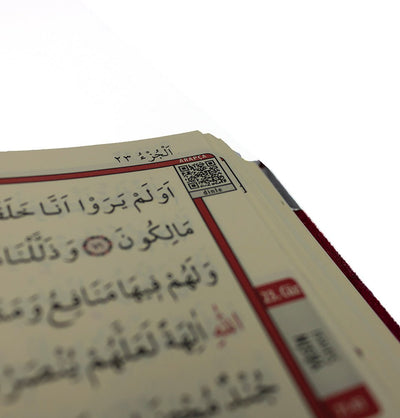 اَلْجُزْءُ ٢٣
ARAPÇA
dinle
اَوَلَمْ يَرَوْا اَنَّا خَلَقْ
مَالِكُونَ ﴿٧١﴾ وَذَلَّلْنَا
وَلَهُمْ فِيهَا مَنَافِعُ وَمَ
اللّٰهِ اٰلِهَةً لَعَلَّهُمْ يُنْصَرُ
جُنْدٌ مُحْضَرُ
23. Cüz